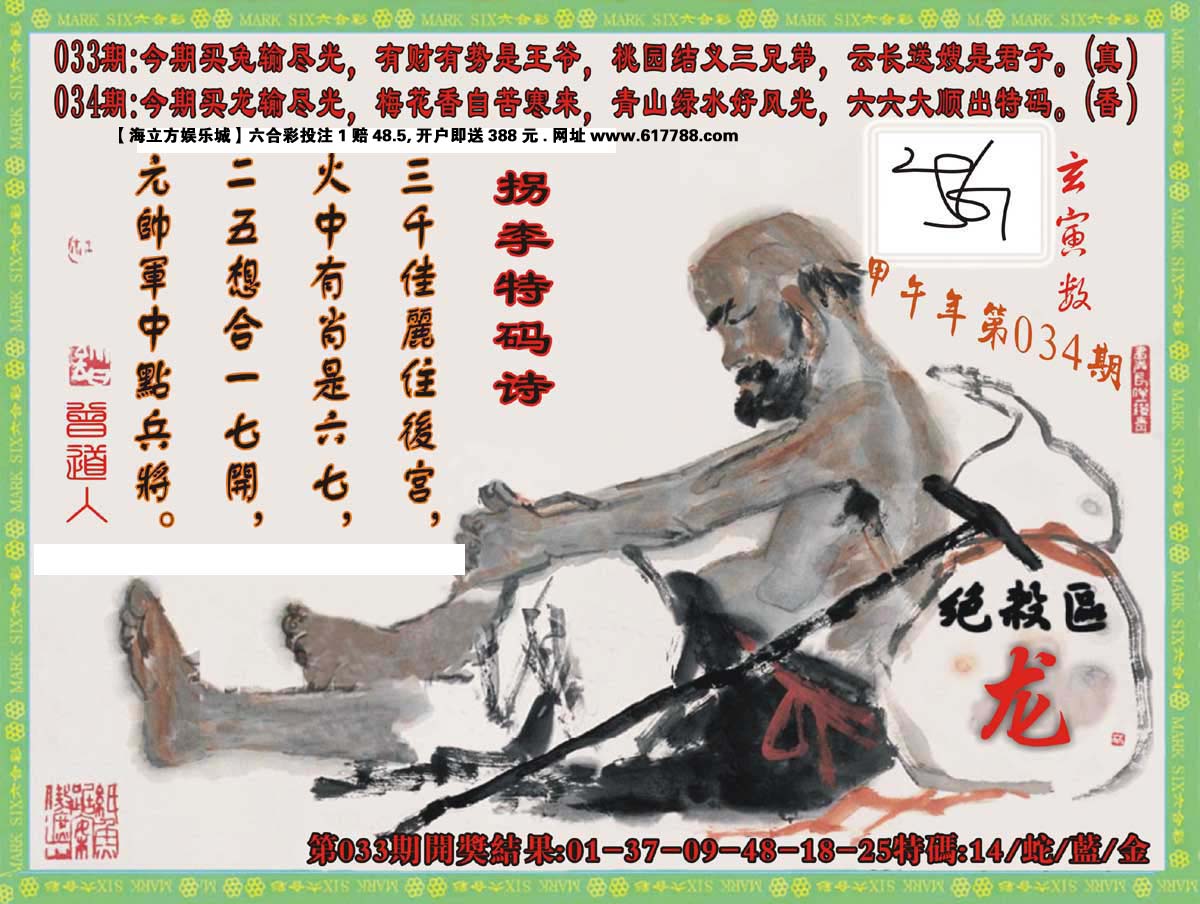 MARK SIX六合彩 MARK SIX六合彩 MARK SIX六合彩 MARK SIX六合彩 MARK SIX六合彩 MARK SIX六合彩
033期:今期买兔输尽光，有财有势是王爷，桃园结义三兄弟，云长送嫂是君子。(真)
034期:今期买龙输尽光，梅花香自苦寒来，青山绿水好风光，六六大顺出特码。(香)
【海立方娱乐城】六合彩投注1赔48.5,开户即送388元.网址www.617788.com
玄寅数
甲午年第034期
拐李特码诗
三千佳麗住後宫，
火中有肖是六七，
二五想合一七開，
元帥軍中點兵將。
曾道人
绝殺區
龙
第033期開獎結果:01-37-09-48-18-25特碼:14/蛇/藍/金